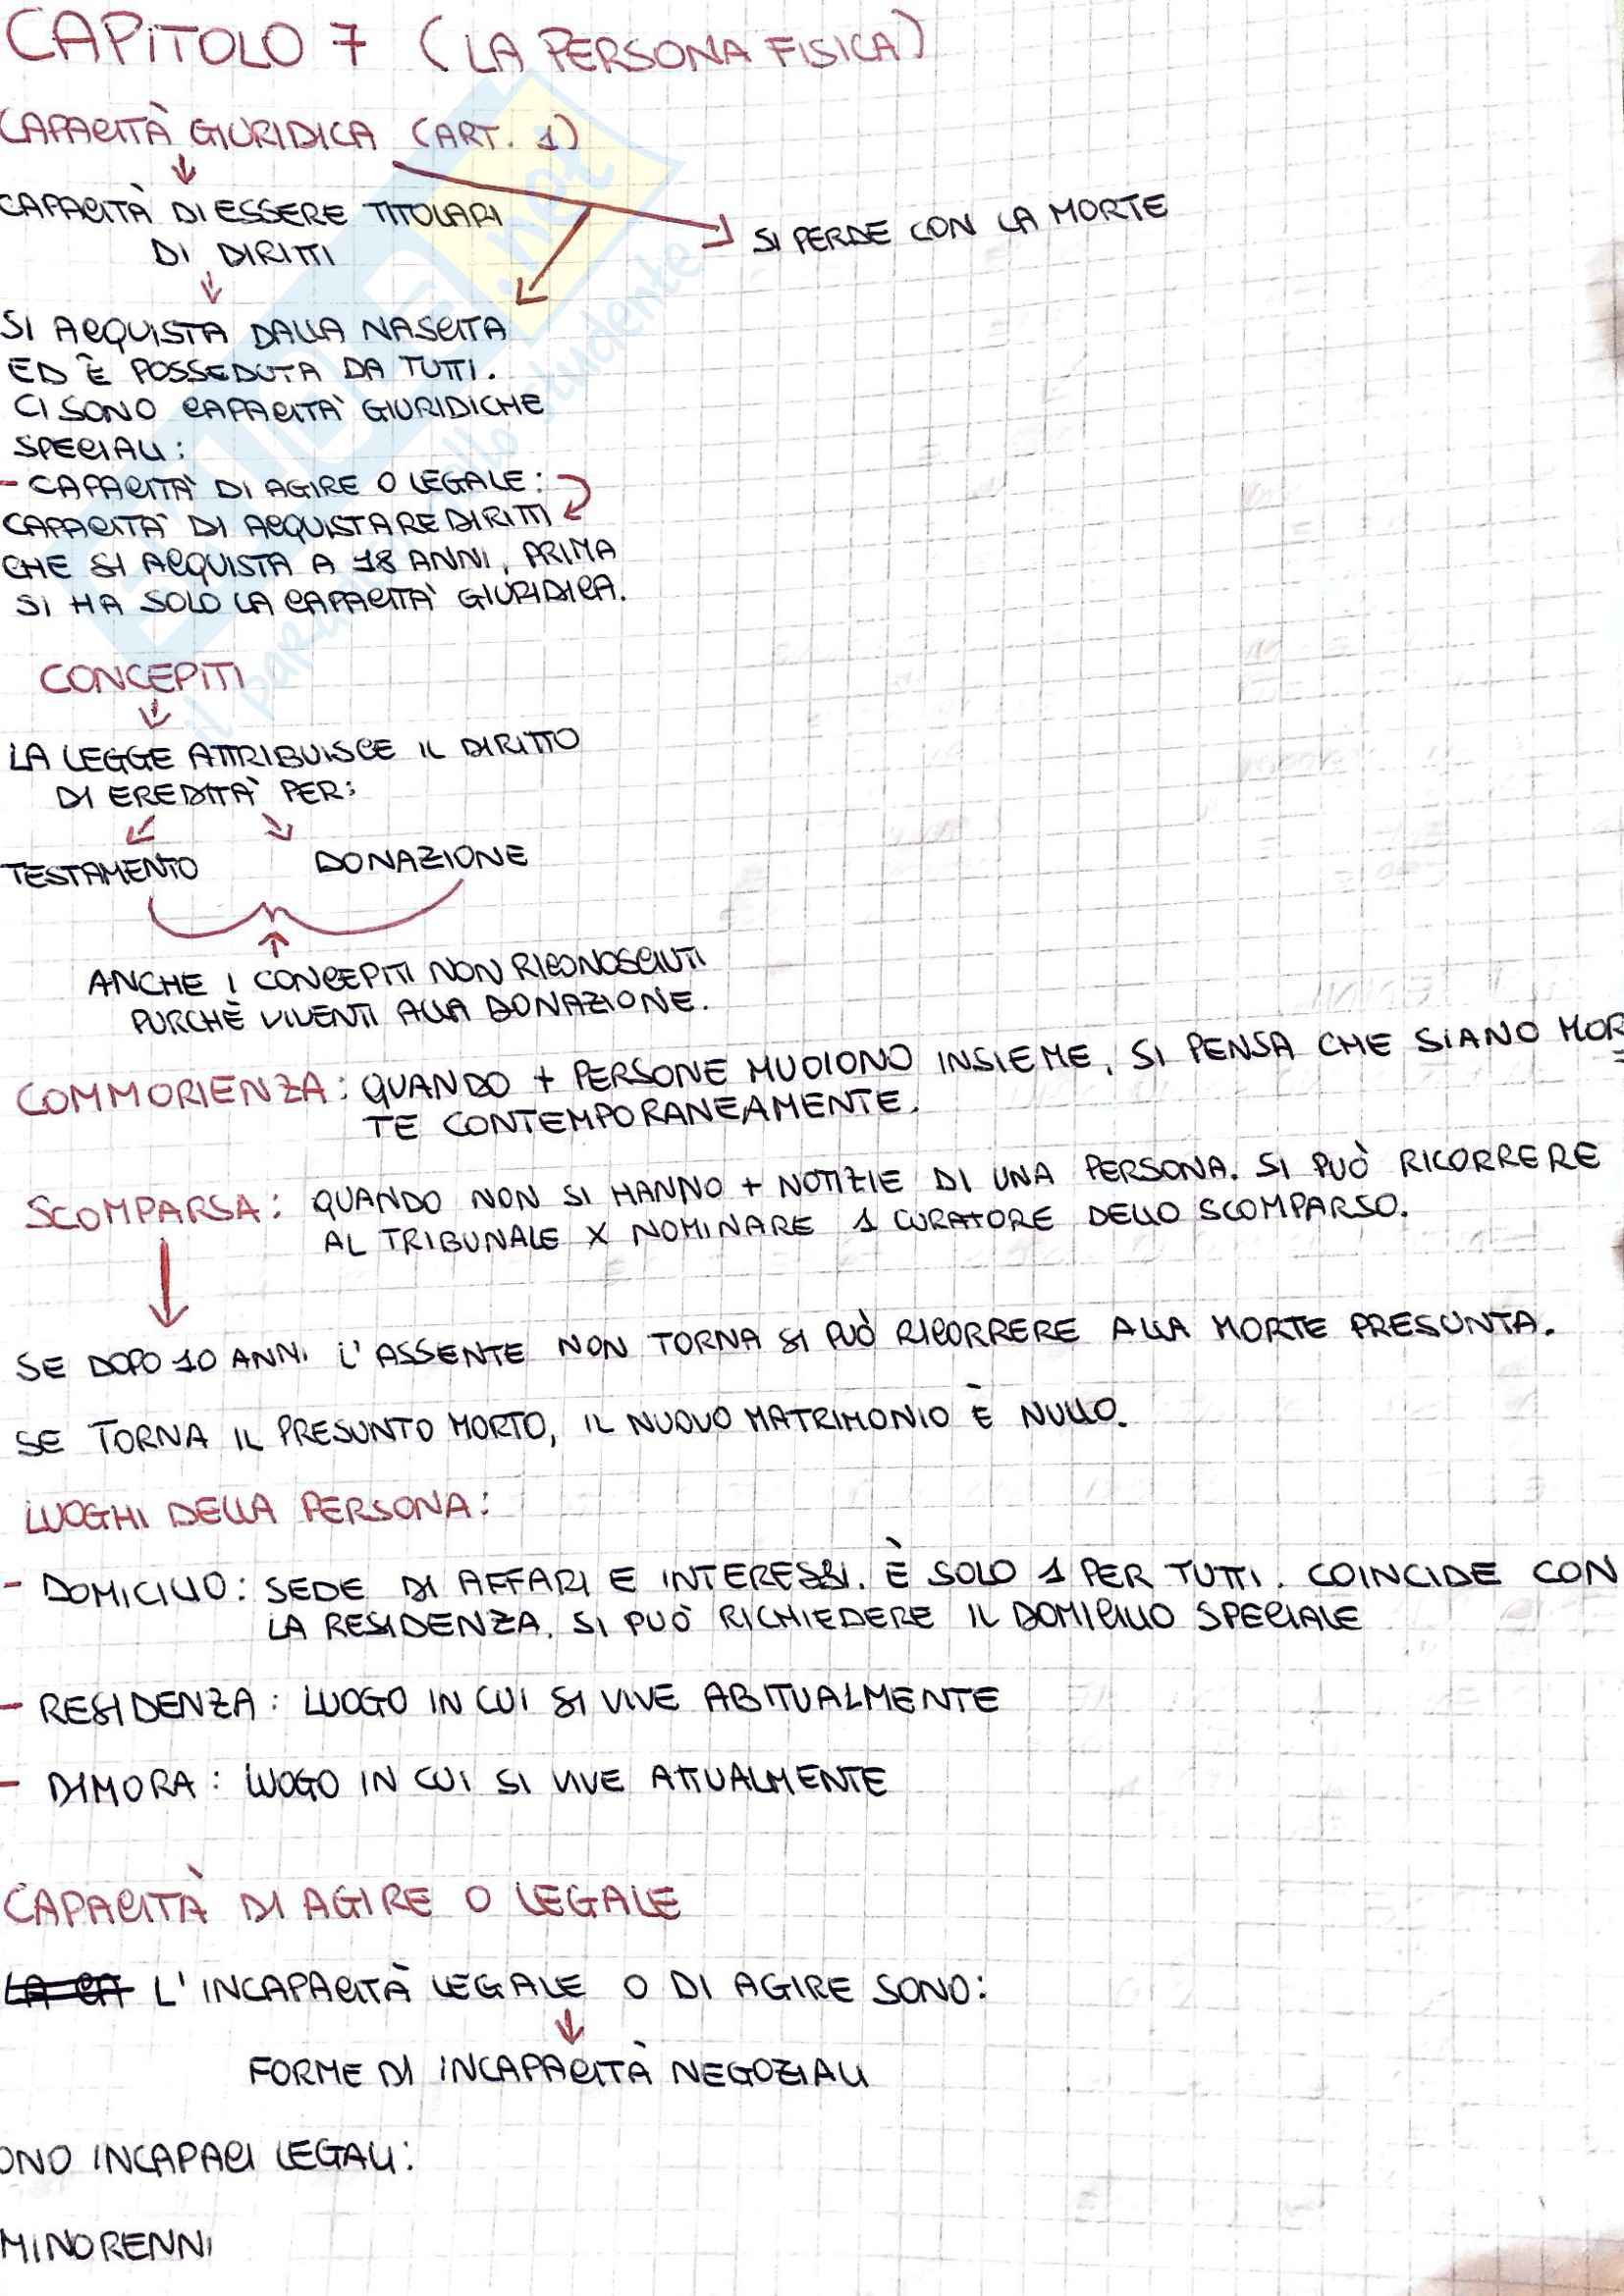 CAPITOLO 7 (LA PERSONA FISICA)
CAPACITÀ GIURIDICA (ART. 1)
CAPACITÀ DI ESSERE TITOLARI
DI DIRITTI
SI PERDE CON LA MORTE
SI ACQUISTA DALLA NASCITA
ED È POSSEDUTA DA TUTTI.
CI SONO CAPACITÀ GIURIDICHE
SPECIALI:
- CAPACITÀ DI AGIRE O LEGALE:
CAPACITÀ DI ACQUISTARE DIRITTI
CHE SI ACQUISTA A 18 ANNI, PRIMA
SI HA SOLO LA CAPACITÀ GIURIDICA.
CONCEPITI
LA LEGGE ATTRIBUISCE IL DIRITTO
DI EREDITÀ PER:
TESTAMENTO DONAZIONE
ANCHE I CONCEPITI NON RICONOSCIUTI
PURCHÈ VIVENTI ALLA DONAZIONE.
COMMORIENZA: QUANDO + PERSONE MUOIONO INSIEME, SI PENSA CHE SIANO MOR
TE CONTEMPORANEAMENTE.
SCOMPARSA: QUANDO NON SI HANNO + NOTIZIE DI UNA PERSONA. SI PUÒ RICORRERE
AL TRIBUNALE X NOMINARE 1 CURATORE DELLO SCOMPARSO.
SE DOPO 10 ANNI L'ASSENTE NON TORNA SI PUÒ RICORRERE ALLA MORTE PRESUNTA.
SE TORNA IL PRESUNTO MORTO, IL NUOVO MATRIMONIO È NULLO.
LUOGHI DELLA PERSONA:
- DOMICILIO: SEDE DI AFFARI E INTERESSI. È SOLO 1 PER TUTTI. COINCIDE CON
LA RESIDENZA. SI PUÒ RICHIEDERE IL DOMICILIO SPECIALE
- RESIDENZA: LUOGO IN CUI SI VIVE ABITUALMENTE
- DIMORA: LUOGO IN CUI SI VIVE ATTUALMENTE
CAPACITÀ DI AGIRE O LEGALE
LA CA L'INCAPACITÀ LEGALE O DI AGIRE SONO:
FORME DI INCAPACITÀ NEGOZIALI
ONO INCAPACI LEGALI:
MINORENNI